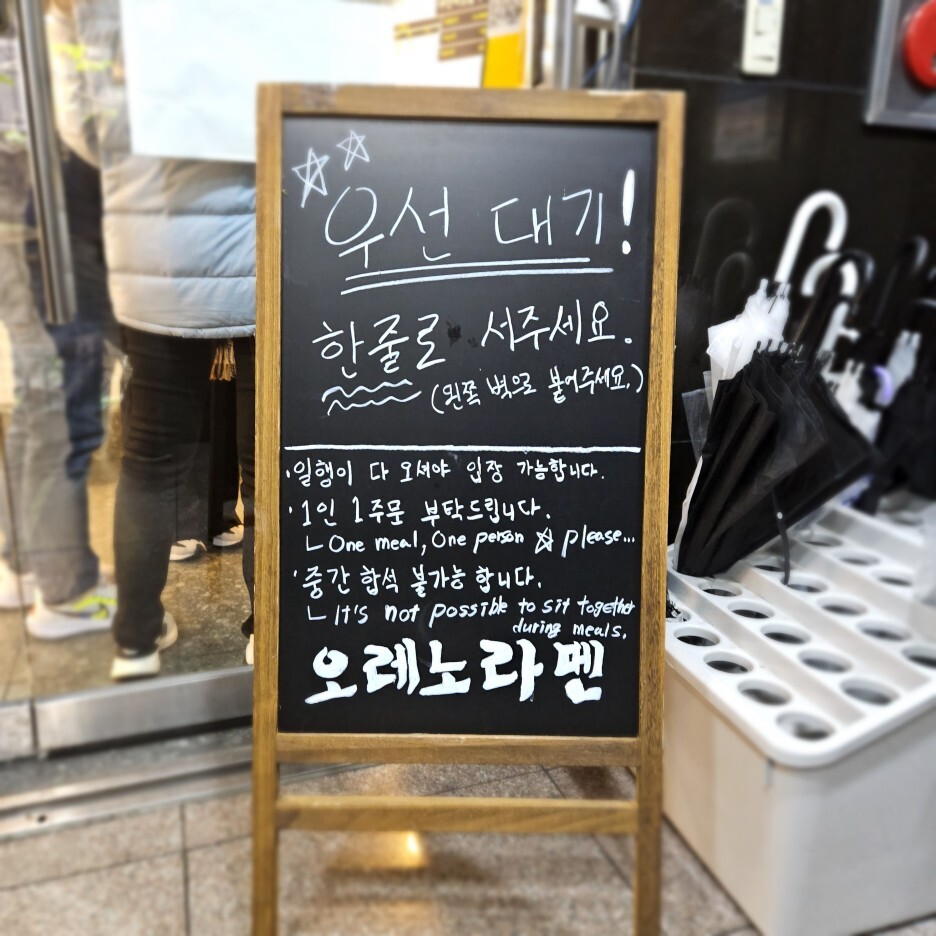 우선 대기!
한줄로 서주세요.
(왼쪽 벽으로 붙어주세요.)
·일행이 다 오셔야 입장 가능합니다.
·1인 1주문 부탁드립니다.
ㄴ One meal, One person ☆ please...
·중간 합석 불가능 합니다.
ㄴ It's not possible to sit together
during meals.
오레노라멘